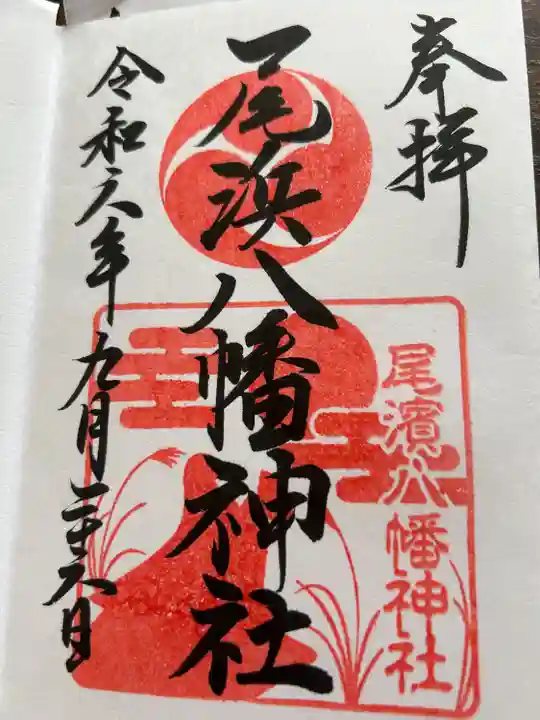 奉拝
尾濱八幡神社
尾浜八幡神社
令和六年九月二十六日